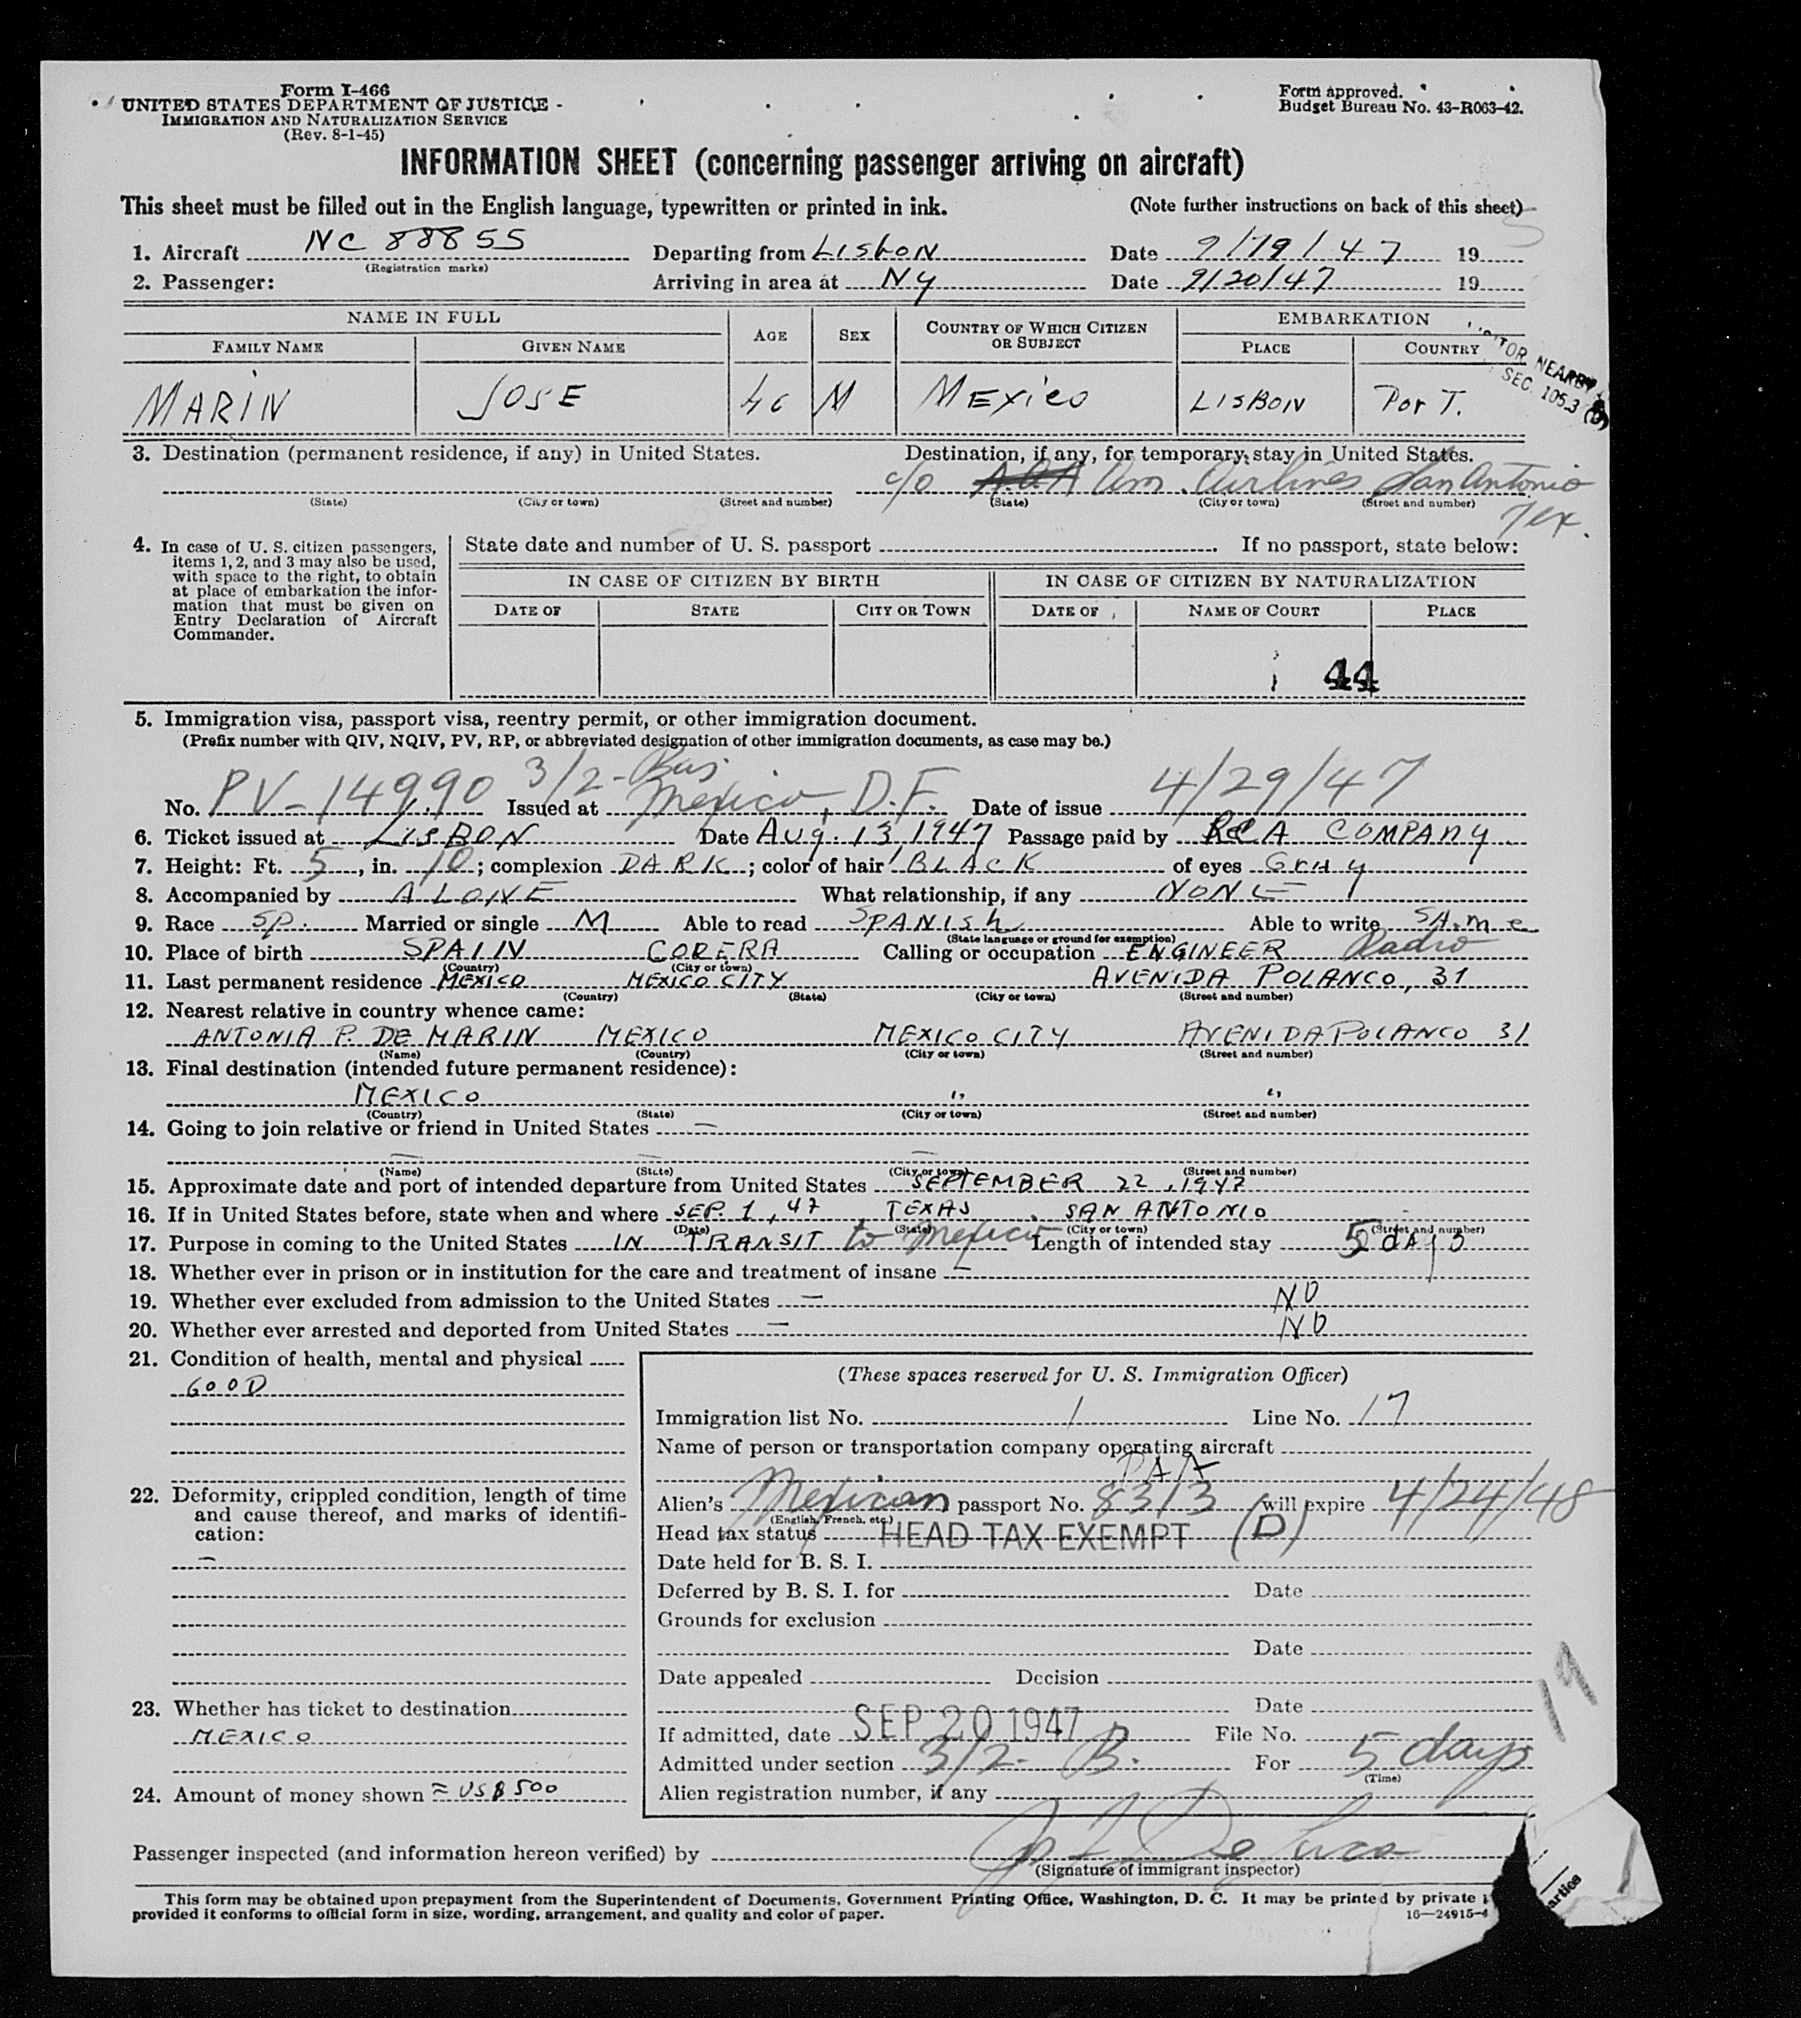 Form I-466
UNITED STATES DEPARTMENT OF JUSTICE
IMMIGRATION AND NATURALIZATION SERVICE
(Rev. 8-1-45)
Form approved.
Budget Bureau No. 43-R063-42.
INFORMATION SHEET (concerning passenger arriving on aircraft)
This sheet must be filled out in the English language, typewritten or printed in ink. (Note further instructions on back of this sheet)
1. Aircraft NC 88855 Departing from LISBON Date 9/19/47 19
(Registration marks)
2. Passenger: Arriving in area at NY Date 9/20/47 19
NAME IN FULL AGE SEX COUNTRY OF WHICH CITIZEN OR SUBJECT EMBARKATION
FAMILY NAME GIVEN NAME PLACE COUNTRY
MARIN JOSE M MEXICO LISBON PorT.
NEARBY
SEC. 105.3
3. Destination (permanent residence, if any) in United States. Destination, if any, for temporary stay in United States.
c/o A.O.A Am. Airlines San Antonio
(State) (City or town) (Street and number) (State) (City or town) (Street and number)
Tex.
4. In case of U. S. citizen passengers, items 1, 2, and 3 may also be used, with space to the right, to obtain at place of embarkation the information that must be given on Entry Declaration of Aircraft Commander.
State date and number of U. S. passport . If no passport, state below:
IN CASE OF CITIZEN BY BIRTH IN CASE OF CITIZEN BY NATURALIZATION
DATE OF STATE CITY OR TOWN DATE OF NAME OF COURT PLACE
44
5. Immigration visa, passport visa, reentry permit, or other immigration document.
(Prefix number with QIV, NQIV, PV, RP, or abbreviated designation of other immigration documents, as case may be.)
3/2-Bus.
No. PV-14990 Issued at Mexico, D.F. Date of issue 4/29/47
6. Ticket issued at LISBON Date Aug. 13, 1947 Passage paid by RCA COMPANY
7. Height: Ft. 5, in. 10; complexion DARK; color of hair BLACK of eyes Gray
8. Accompanied by ALONE What relationship, if any NONE
9. Race SP. Married or single M Able to read SPANISh Able to write SAme
(State language or ground for exemption)
10. Place of birth SPAIN CORERA Calling or occupation ENGINEER Radio
(Country) (City or town)
11. Last permanent residence MEXICO MEXICO CITY AVENIDA POLANCO, 31
(Country) (State) (City or town) (Street and number)
12. Nearest relative in country whence came:
ANTONIA P. DE MARIN MEXICO MEXICO CITY AVENIDA POLANCO 31
(Name) (Country) (City or town) (Street and number)
13. Final destination (intended future permanent residence):
MEXICO " "
(Country) (State) (City or town) (Street and number)
14. Going to join relative or friend in United States —
— — —
(Name) (State) (City or town) (Street and number)
15. Approximate date and port of intended departure from United States SEPTEMBER 22, 1947
16. If in United States before, state when and where SEP. 1, 47 TEXAS SAN ANTONIO
(Date) (State) (City or town) (Street and number)
17. Purpose in coming to the United States IN TRANSIT to Mexico Length of intended stay 5 days
18. Whether ever in prison or in institution for the care and treatment of insane —
19. Whether ever excluded from admission to the United States — NO
20. Whether ever arrested and deported from United States — NO
21. Condition of health, mental and physical
GOOD
22. Deformity, crippled condition, length of time and cause thereof, and marks of identification:
—
23. Whether has ticket to destination
MEXICO
24. Amount of money shown ≈ US$ 500
(These spaces reserved for U. S. Immigration Officer)
Immigration list No. 1 Line No. 17
Name of person or transportation company operating aircraft
PAA
Alien's Mexican passport No. 8313 will expire 4/24/48
(English, French, etc.)
Head tax status HEAD TAX EXEMPT (D)
Date held for B. S. I.
Deferred by B. S. I. for Date
Grounds for exclusion
Date
Date appealed Decision
Date
If admitted, date SEP 20 1947 File No.
Admitted under section 3/2- B. For 5 days
(Time)
Alien registration number, if any
17
Passenger inspected (and information hereon verified) by
(Signature of immigrant inspector)
This form may be obtained upon prepayment from the Superintendent of Documents, Government Printing Office, Washington, D. C. It may be printed by private
provided it conforms to official form in size, wording, arrangement, and quality and color of paper.
16—24915-4
arties